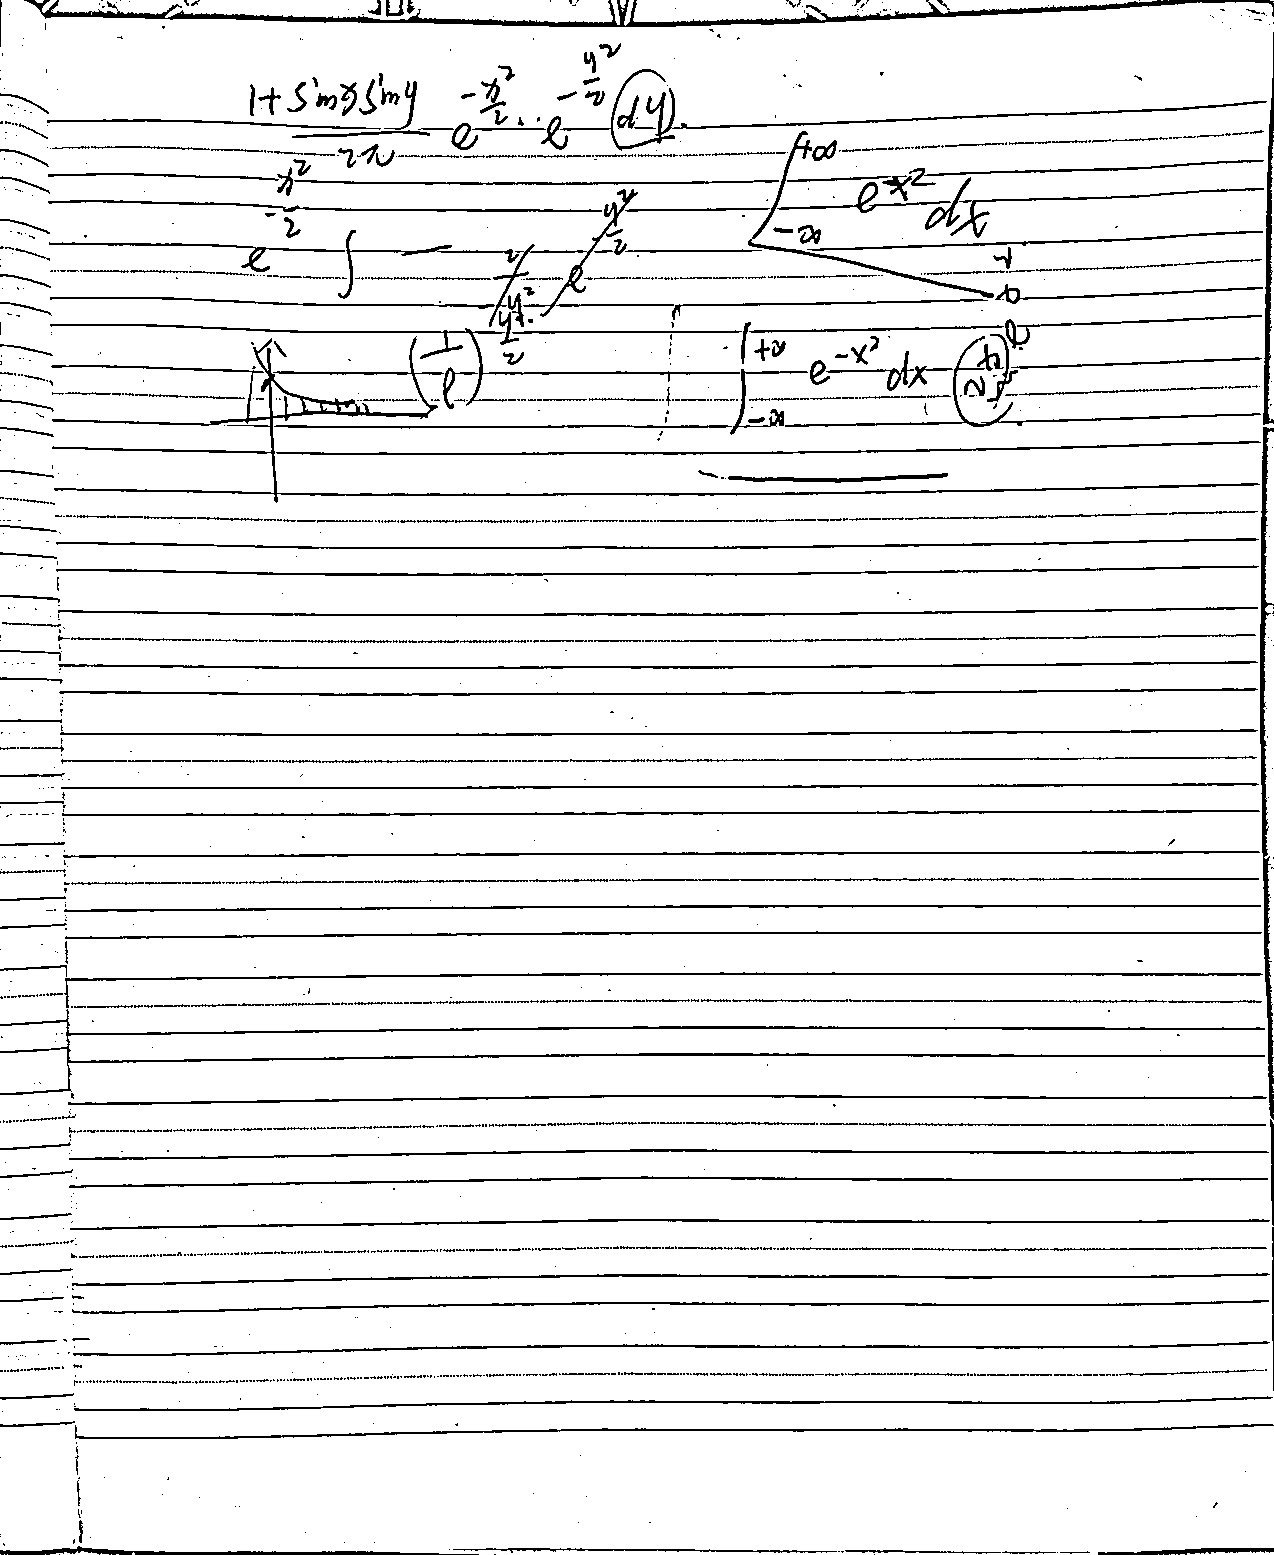 1+sinxsiny / 2π e^{-x²/2} · e^{-y²/2} (dy).
e^{-x²/2} ∫ — e^{-y²/2}
∫_{-∞}^{+∞} e^{-x²} dx
(1/e)^{y²/2}
∫_{-∞}^{+∞} e^{-x²} dx